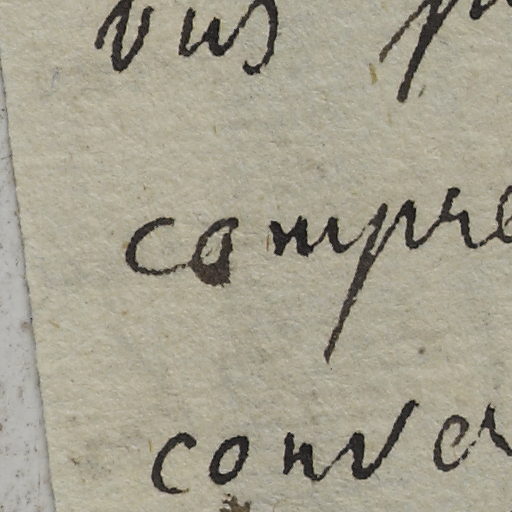 vus p
compre
conver